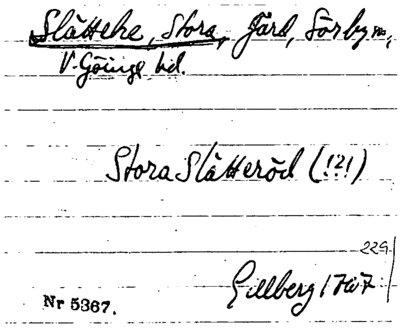 Slättehe, Stora, Gård, Sörby sn,
V. Göinge hd.
Stora Slätteröd (!?!)
229
Gillberg 1767
Nr 5367.